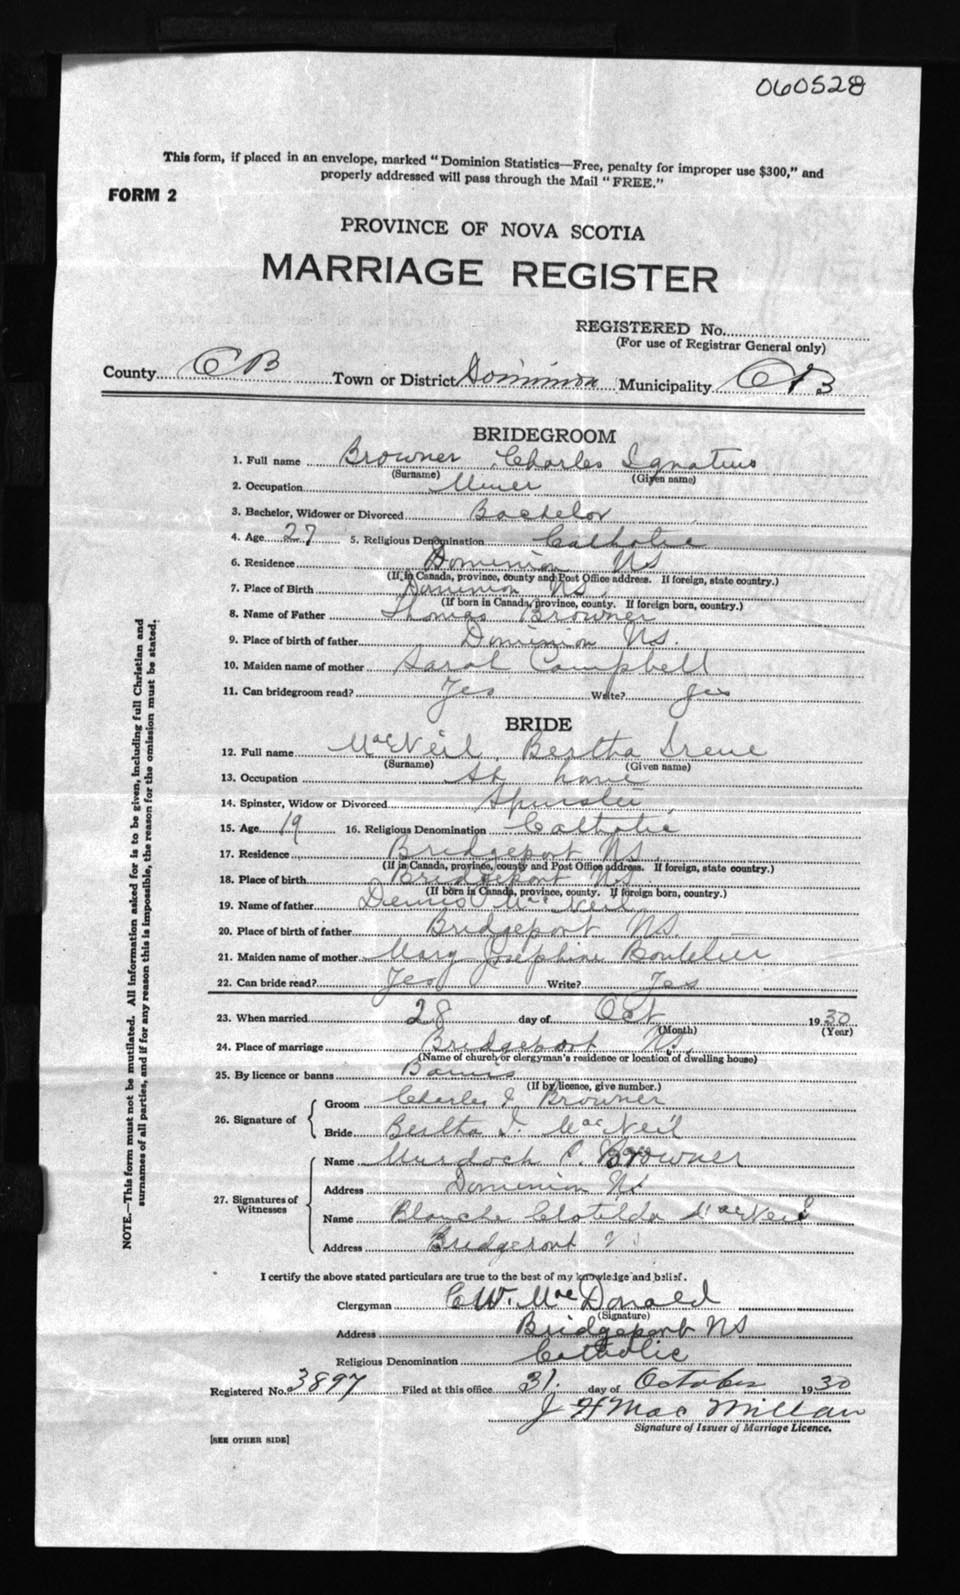 060528
This form, if placed in an envelope, marked "Dominion Statistics—Free, penalty for improper use $300," and
properly addressed will pass through the Mail "FREE."
FORM 2
PROVINCE OF NOVA SCOTIA
MARRIAGE REGISTER
REGISTERED No.
(For use of Registrar General only)
County CB Town or District Dominion Municipality CB
BRIDEGROOM
1. Full name Browner Charles Ignatius
(Surname) (Given name)
2. Occupation Miner
3. Bachelor, Widower or Divorced Bachelor
4. Age 27 5. Religious Denomination Catholic
6. Residence Dominion NS
(If in Canada, province, county and Post Office address. If foreign, state country.)
7. Place of Birth Dominion NS.
(If born in Canada, province, county. If foreign born, country.)
8. Name of Father Thomas Browner
9. Place of birth of father Dominion NS.
10. Maiden name of mother Sarah Campbell
11. Can bridegroom read? Yes Write? Yes
BRIDE
12. Full name MacNeil Bertha Irene
(Surname) (Given name)
13. Occupation At home
14. Spinster, Widow or Divorced Spinster
15. Age 19 16. Religious Denomination Catholic
17. Residence Bridgeport NS
(If in Canada, province, county and Post Office address. If foreign, state country.)
18. Place of birth Bridgeport NS
(If born in Canada, province, county. If foreign born, country.)
19. Name of father Dennis MacNeil
20. Place of birth of father Bridgeport NS.
21. Maiden name of mother Mary Josephine Boutilier
22. Can bride read? Yes Write? Yes
23. When married 28 day of Oct 1930
(Month) (Year)
24. Place of marriage Bridgeport NS.
(Name of church or clergyman's residence or location of dwelling house)
25. By licence or banns Banns
(If by licence, give number.)
26. Signature of Groom Charles I Browner
Bride Bertha I. MacNeil
27. Signatures of Witnesses Name Murdoch C. Browner
Address Dominion NS
Name Blanche Clotilda MacNeil
Address Bridgeport NS
I certify the above stated particulars are true to the best of my knowledge and belief.
Clergyman C W. MacDonald
(Signature)
Address Bridgeport NS
Religious Denomination Catholic
Registered No. 3897 Filed at this office 31. day of October 1930
J H MacMillan
Signature of Issuer of Marriage Licence.
[SEE OTHER SIDE]
NOTE.—This form must not be mutilated. All information asked for is to be given, including full Christian and
surnames of all parties, and if for any reason this is impossible, the reason for the omission must be stated.